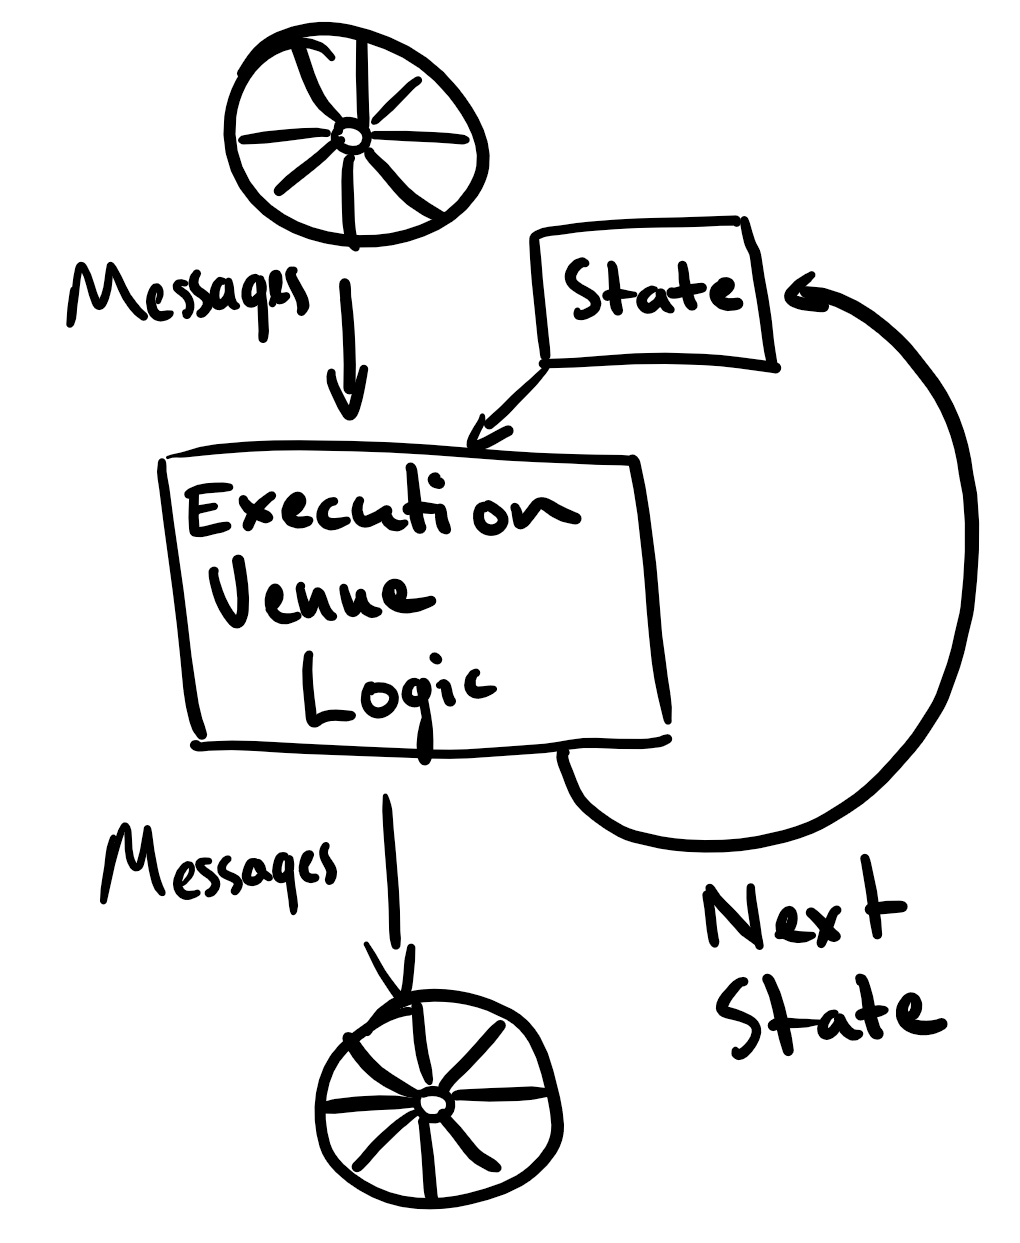 Messages
State
Execution
Venue
Logic
Messages
Next
State